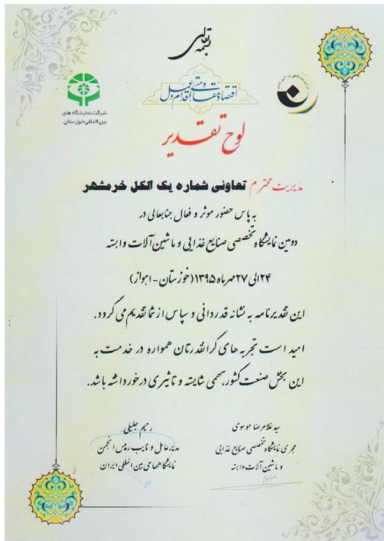 بسمه تعالی
اقتصاد مقاومتی اقدام و عمل
شرکت نمایشگاه های
بین المللی خوزستان
لوح تقدیر
مدیریت محترم تعاونی شماره یک الکل خرمشهر
به پاس حضور موثر و فعال جنابعالی در
دومین نمایشگاه تخصصی صنایع غذایی و ماشین آلات وابسته
۲۴ الی ۲۷ مهرماه ۱۳۹۵ (خوزستان - اهواز)
این تقدیرنامه به نشانه قدردانی و سپاس از شما تقدیم می گردد.
امید است تجربه های گرانقدرتان همواره در خدمت به
این بخش صنعت کشور سهمی شایسته و تاثیری درخور داشته باشد.
سید غلامرضا موسوی
مجری نمایشگاه تخصصی صنایع غذایی
و ماشین آلات وابسته
رحیم جلیلی
مدیرعامل و نایب رئیس انجمن
نمایشگاههای بین المللی ایران